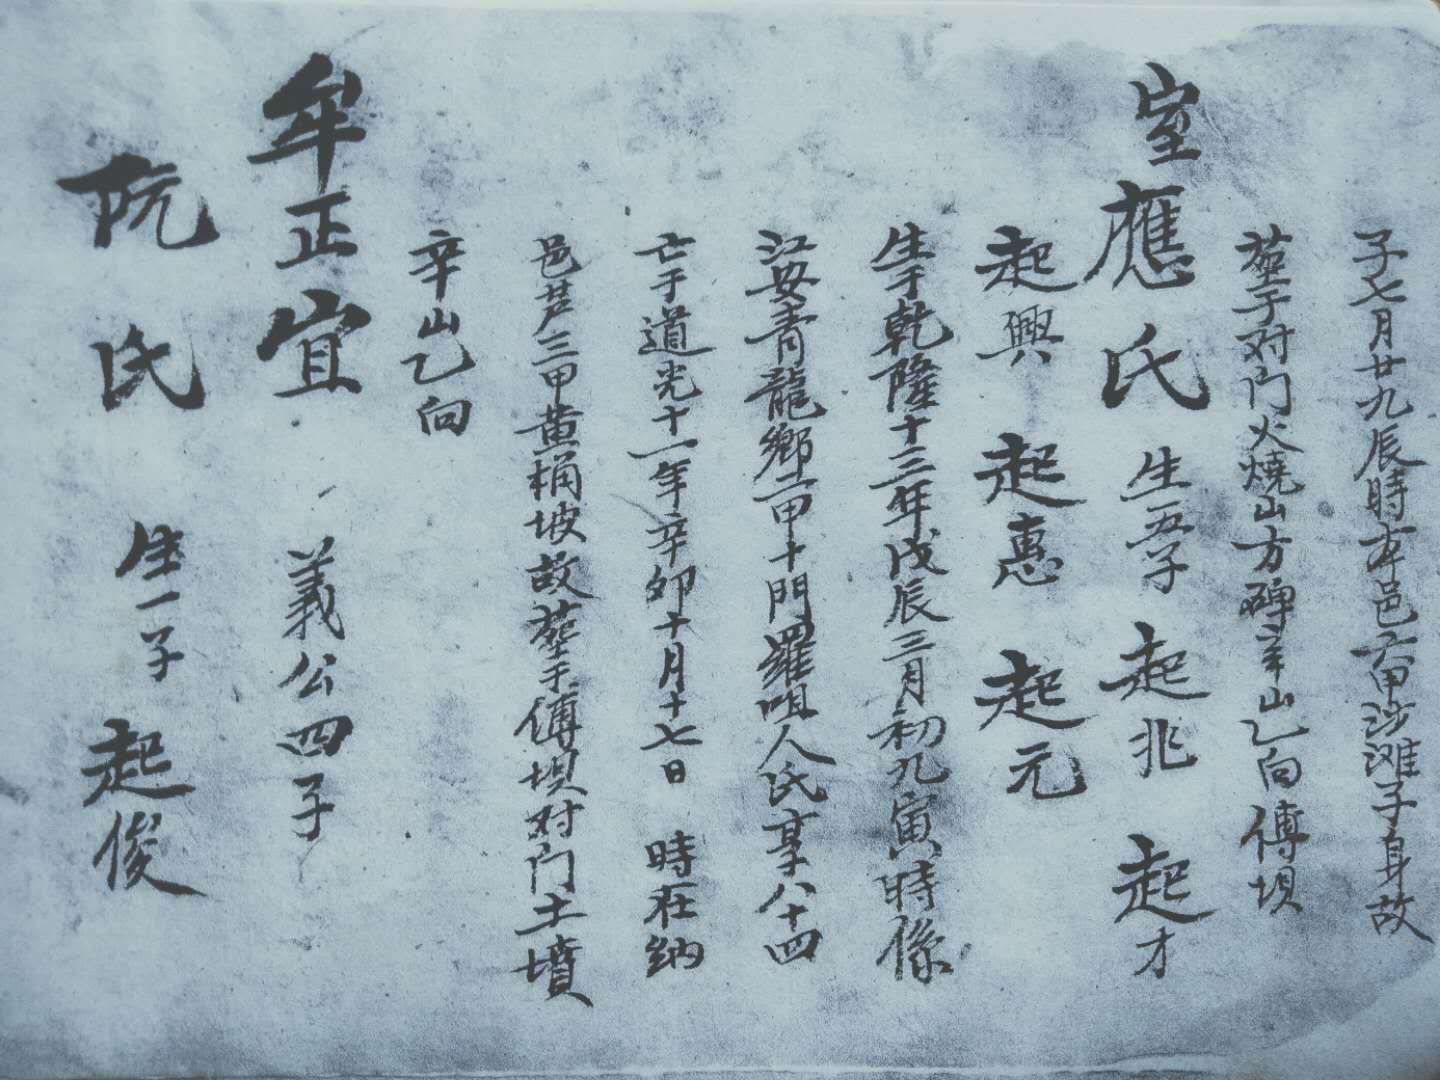 子七月廿九辰時在本邑六甲沙滩子身故
塟于对门火燒山方碑辛山乙向傅坝
室應氏 生五子 起兆 起才
起興 起惠 起元
生于乾隆十三年戊辰三月初九寅時係
江安青龍鄉一甲十門羅咀人氏享八十四
亡于道光十一年辛卯十月十七日 時在納
邑芦三甲黄桷坡故塟于傅坝对门土墳
辛山乙向
牟正宜 義公四子
阮氏 生一子 起俊